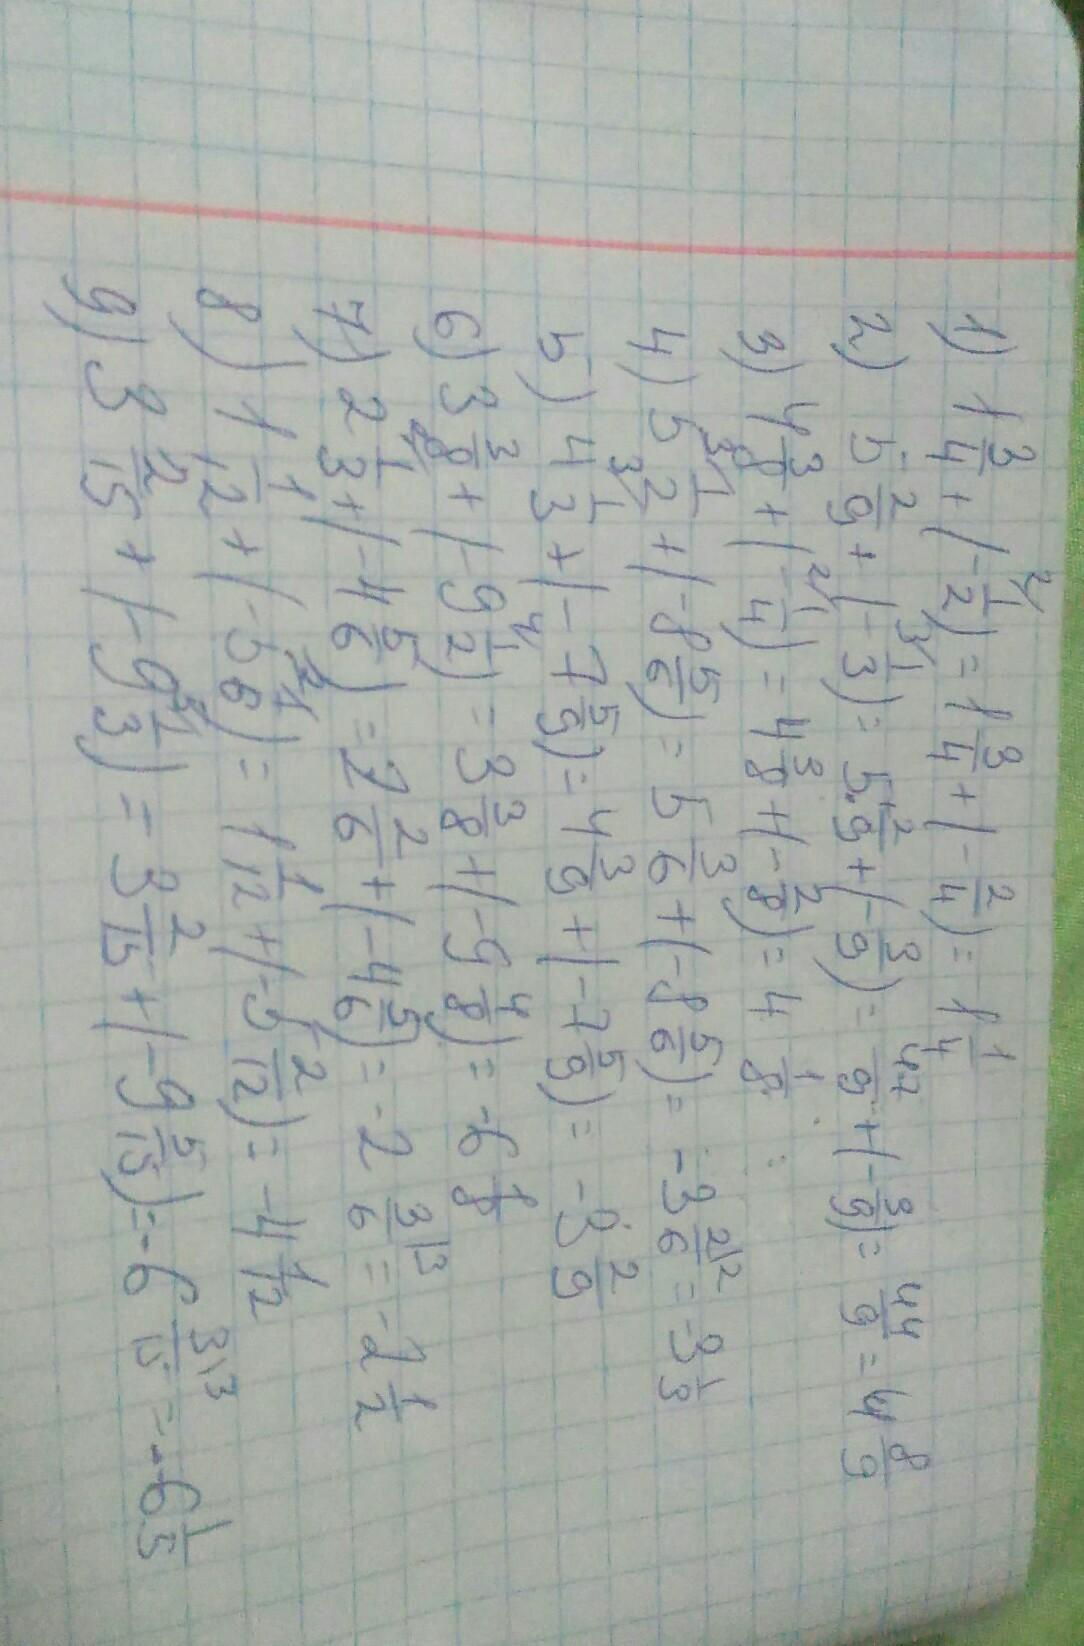 1) 1 3/4 + (-1/2 \2) = 1 3/4 + (-2/4) = 1 1/4
2) 5 2/9 + (-1/3 \3) = 5 2/9 + (-3/9) = 47/9 + (-3/9) = 44/9 = 4 8/9
3) 4 3/8 + (-1/4 \2) = 4 3/8 + (-2/8) = 4 1/8
4) 5 1/2 \3 + (-8 5/6) = 5 3/6 + (-8 5/6) = -3 2/6 \2 = -3 1/3
5) 4 1/3 \3 + (-7 5/9) = 4 3/9 + (-7 5/9) = -3 2/9
6) 3 3/8 + (-9 1/2 \4) = 3 3/8 + (-9 4/8) = -6 1/8
7) 2 1/3 \2 + (-4 5/6) = 2 2/6 + (-4 5/6) = -2 3/6 \3 = -2 1/2
8) 1 1/12 + (-5 1/6 \2) = 1 1/12 + (-5 2/12) = -4 1/12
9) 3 2/15 + (-9 1/3 \5) = 3 2/15 + (-9 5/15) = -6 3/15 \3 = -6 1/5